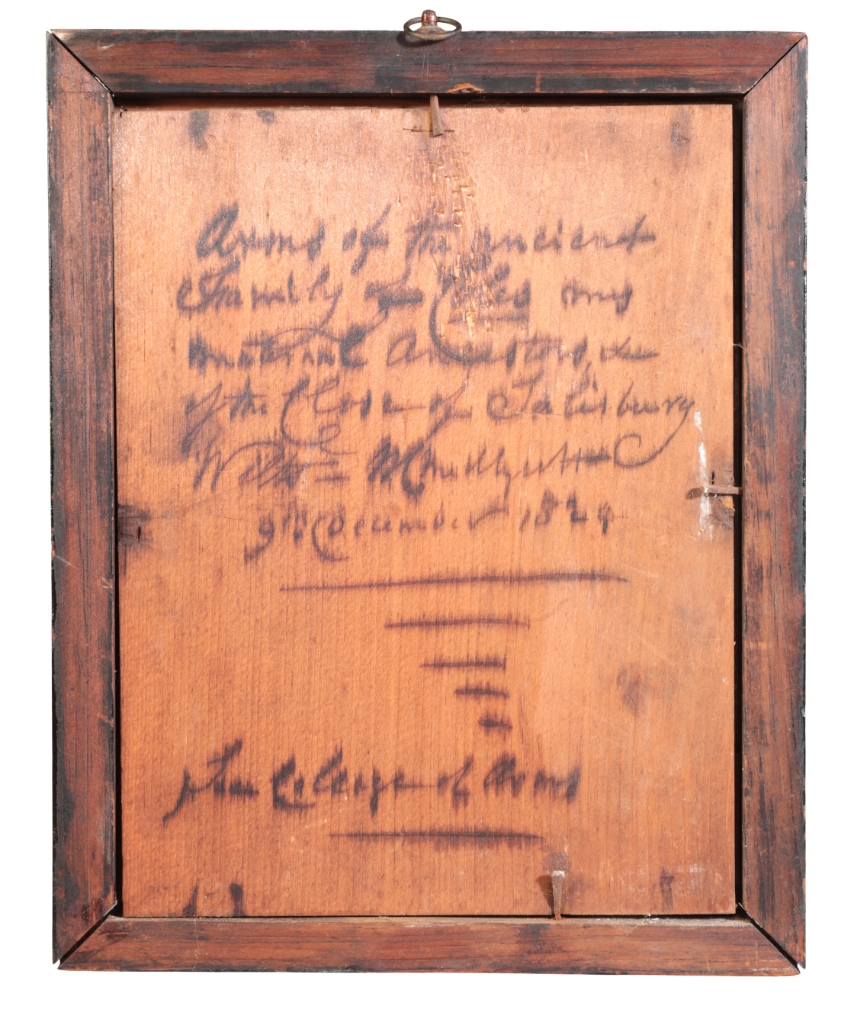 Arms of the ancient
Family of Coles my
maternal Ancestors, &c
of the Close of Salisbury
Wilts
9th December 1829
The College of Arms